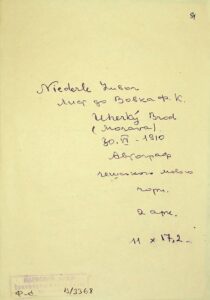 Niederle Lubor
Лист до Вовка Ф. К.
Uherský Brod
(Morava)
30. VI - 1910
Автограф
чеською мовою
чорн.
2 арк.
11 x 17,2
Ф-1 В/3368